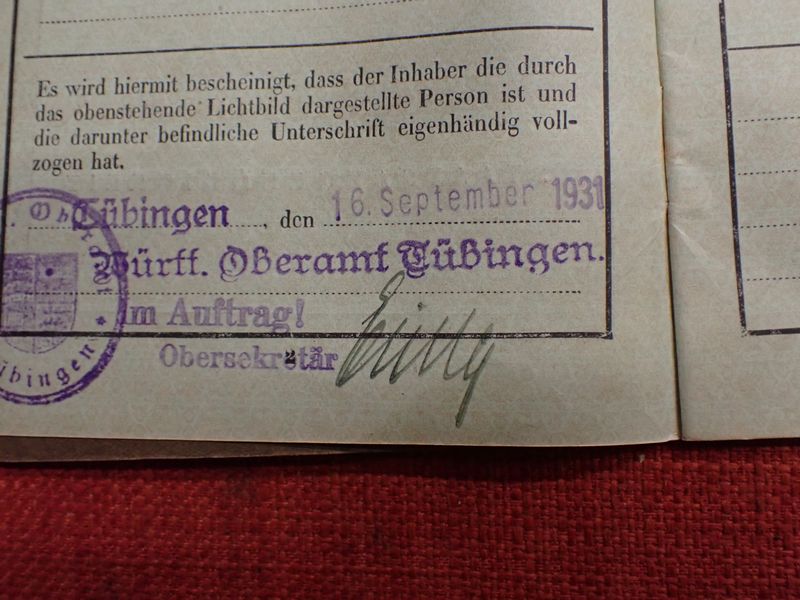 Es wird hiermit bescheinigt, dass der Inhaber die durch
das obenstehende Lichtbild dargestellte Person ist und
die darunter befindliche Unterschrift eigenhändig voll-
zogen hat.
Tübingen, den 16. September 1931
Württ. Oberamt Tübingen.
Im Auftrag!
Obersekretär
2